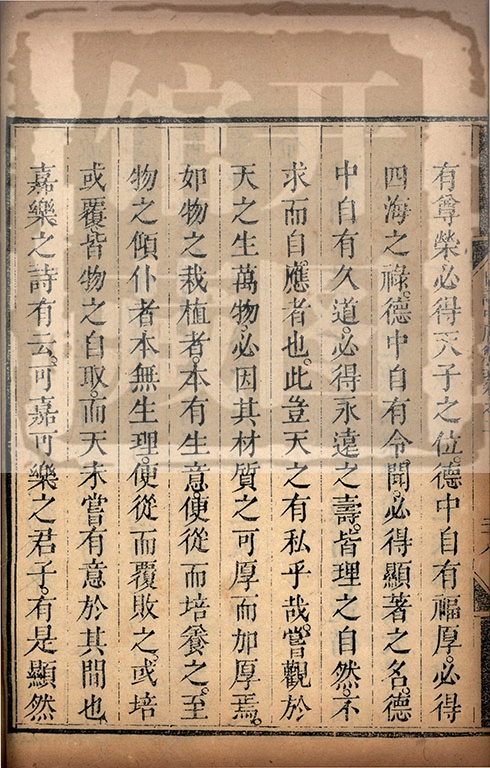 有尊榮必得天子之位。德中自有福厚。必得
四海之祿。德中自有令聞。必得顯著之名。德
中自有久道。必得永遠之壽。皆理之自然。不
求而自應者也。此豈天之有私乎哉。嘗觀於
天之生萬物。必因其材質之可厚而加厚焉。
如物之栽植者。本有生意。便從而培養之。至
物之傾仆者本無生理。便從而覆敗之。或培
或覆。皆物之自取。而天未嘗有意於其間也
嘉樂之詩有云。可嘉可樂之君子。有是顯然